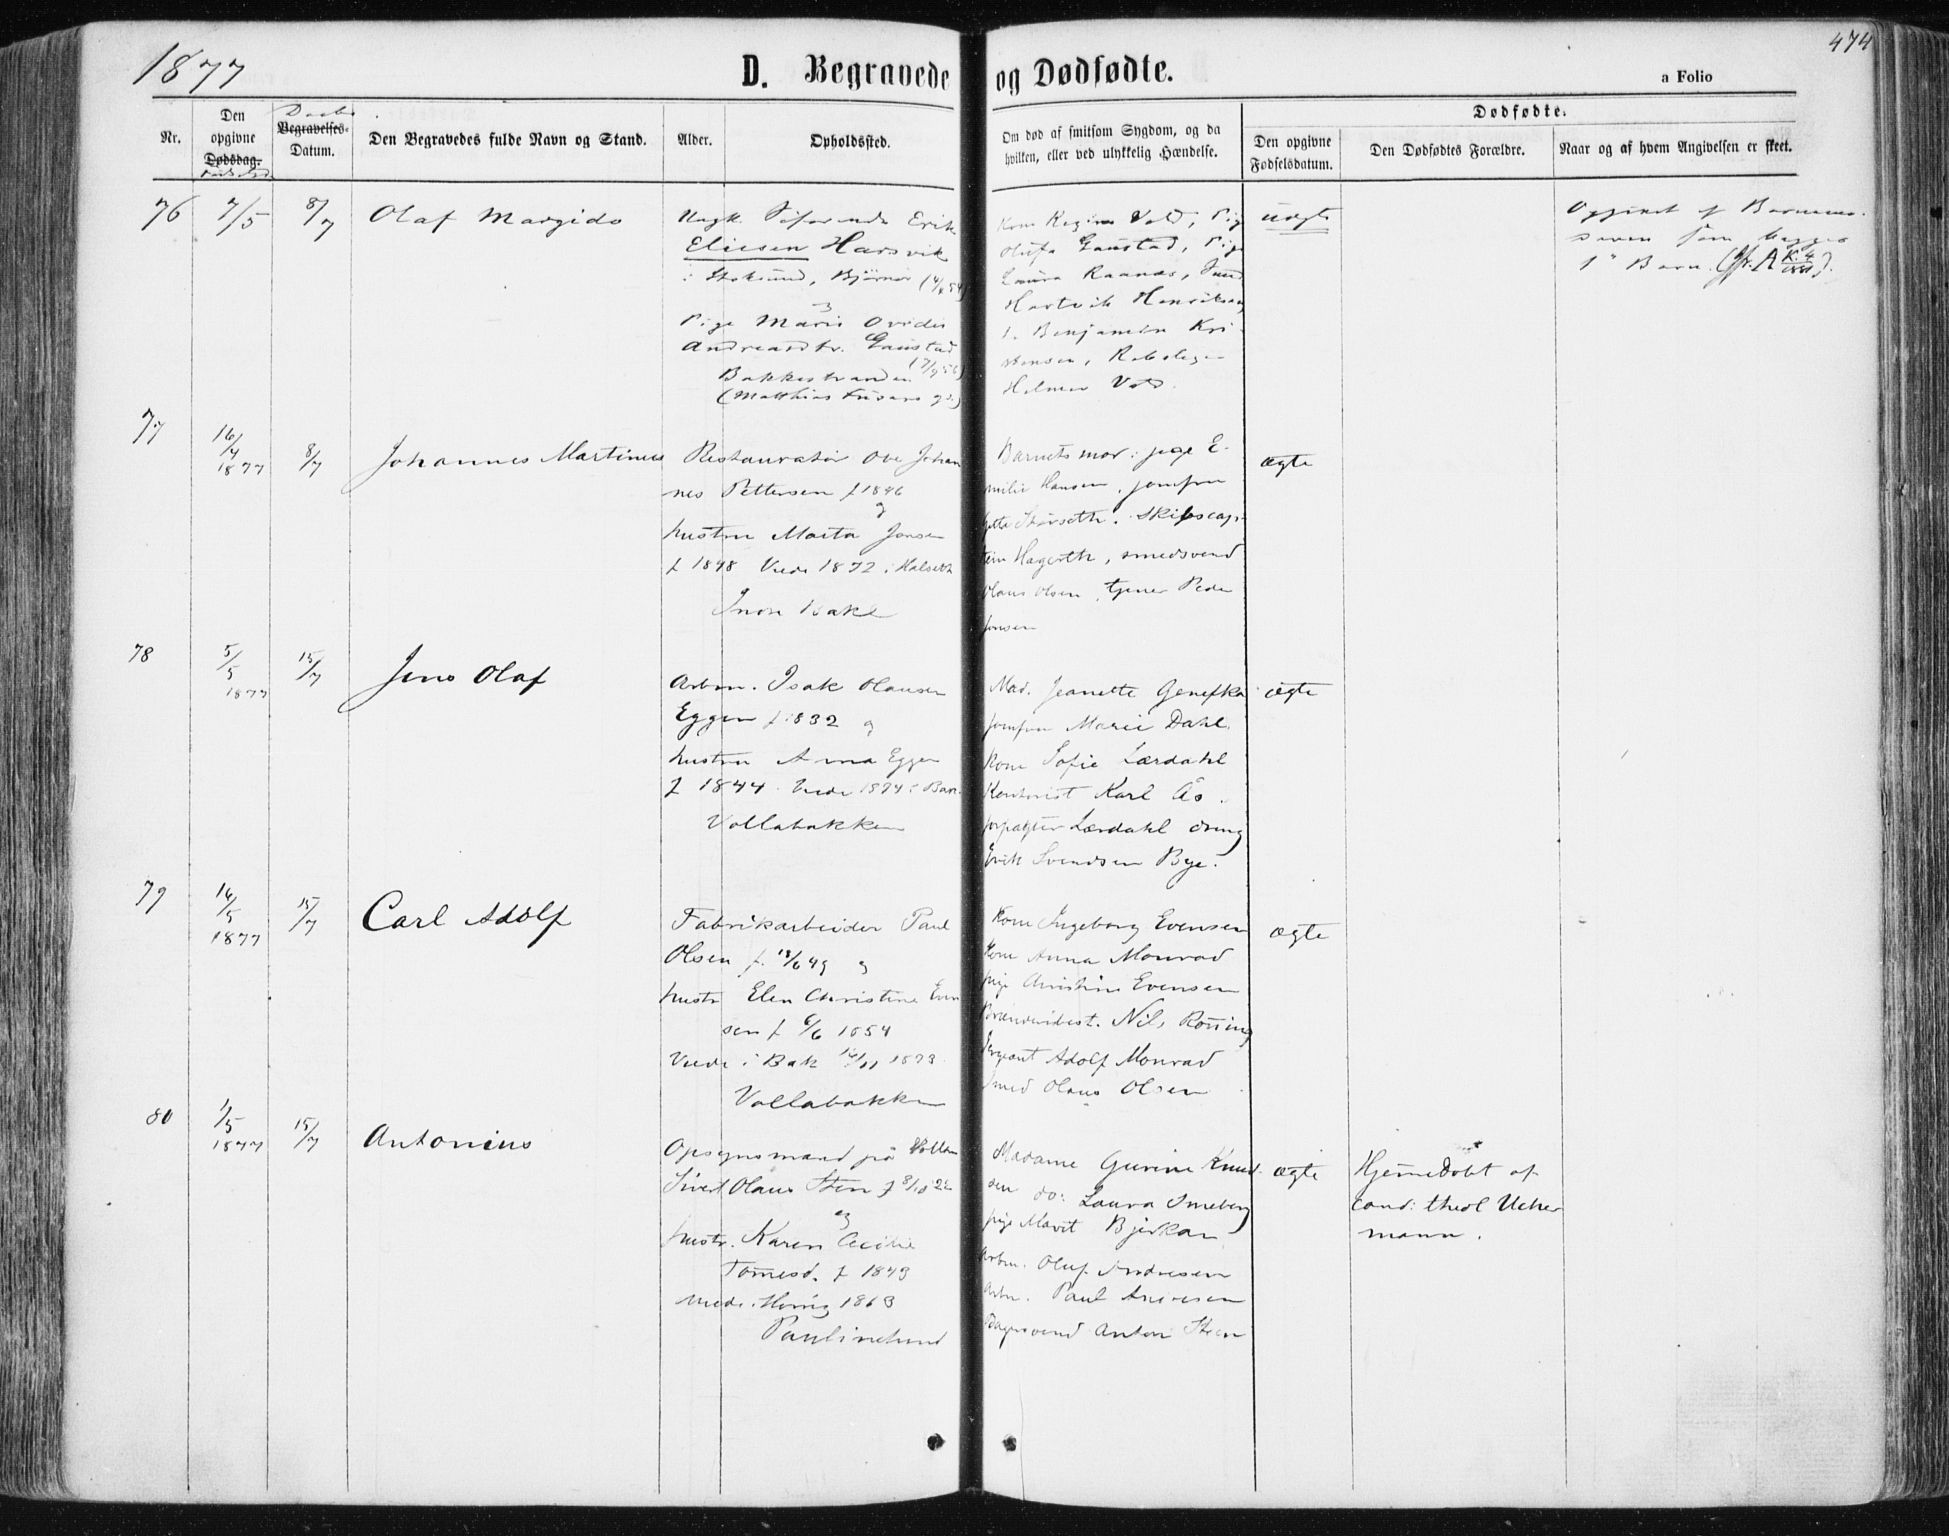 1877
D. Begravede og Dødfødte.
474
a Folio
Nr.
Den opgivne Dødsdag.
Daabs
Begravelses-Datum.
Den Begravedes fulde Navn og Stand.
Alder.
Opholdssted.
Om død af smitsom Sygdom, og da
hvilken, eller ved ulykkelig Hændelse.
Dødfødte.
Den opgivne
Fødselsdatum.
Den Dødfødtes Forældre.
Naar og af hvem Angivelsen er skeet.
76
7/5
8/7
Olaf Margido
Ungk. Søfarende Erik
Eliesen Harsvik
i Stoksund, Bjørnør
Pige Marie Ovidia
Andreasdtr. Gaustad
Bakkestranden
Kone Regine Vold, Pige
Olufa Gaustad, Pige
Laura Raanæs, Smed
Hartvik Henriksen,
Benjamin Kri-
stensen, Rebslager
Helmer Vold.
uægte
Opgivet af Barnemo-
deren som begges
1ste Barn.
77
16/4 1877
8/7
Johannes Martinus
Restauratør Ove Johan
nes Pettersen f 1846
og
hustru Marta Jonsen
f 1848 Viede 1872 i Halseth
Barnets mor: pige E-
milie Hansen, jomfru
Skipscap-
tein Hagerth, smedsvend
Olaus Olsen, tjener Peder
Jonsen
ægte
78
5/5 1877
15/7
Jens Olaf
Arbm. Isak Olausen
Eggen f 1832 og
hustru Anna Eggen
f 1844. Viede 1874 i Bak.
Vollabakken
Mad. Jeanette Genefka
jomfru Marie Dahl.
Kone Sofie Lærdahl
Kontorist Karl Ås.
forpagter Lærdahl dreng
Erik Svendsen Bye.
ægte
79
16/5 1877
15/7
Carl Adolf
Fabrikarbeider Paul
Olsen f. 18/6 49 og
hustr Elen Christine Even
sen f 6/6 1854
Viede i Bak 16/11 1873
Vollabakken
Kone Ingeborg Evensen
Kone Anna Monrad
pige Christine Evensen
Brænderibest. Nils Rønning
Sergeant Adolf Monrad
Smed Olaus Olsen
ægte
80
1/5 1877
15/7
Antonius
Opsynsmand på Vollan
Sivert Olaus Sten f 8/10 22
og
hustr. Karen Cecilie
Tomesd. f 1843
viede i Horrig 1863
Paulinelund
Madame Gurine Knud-
sen do: Laura Smeberg
pige Marit Bjerkan
Arbm. Oluf Andresen
Arbm. Paul Andresen
Bagersvend Anton Steen
ægte
Hjemmedøbt af
cand: theol Ucher
mann.